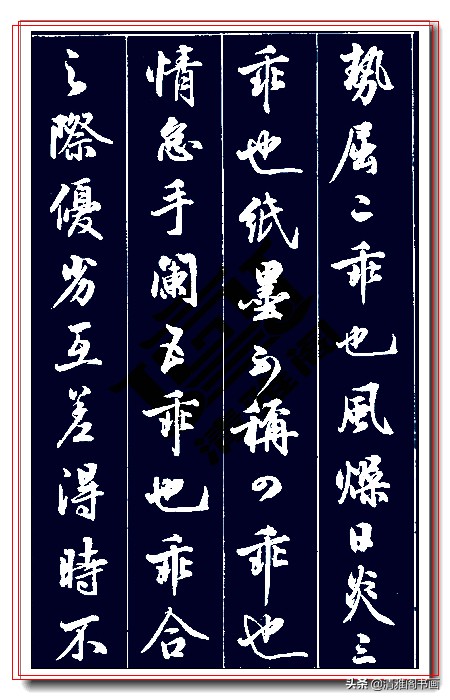 勢屈二乖也風燥日炎三
乖也紙墨不稱四乖也
情怠手闌五乖也乖合
之際優劣互差得時不
头条@清雅阁书画